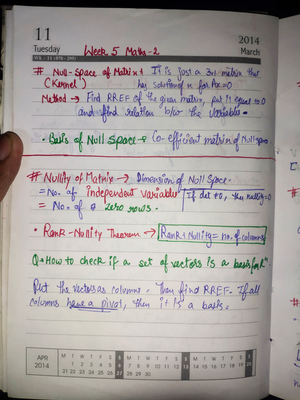 11
Tuesday
WK - 11 (070 - 295)
2014
March
Week 5 Maths-2
# Null-Space of Matrix → It is just a 3x1 matrix that
(Kernel) has solution of x for Ax=0
Method → Find RREF of the given matrix, put it equal to 0
and find relation b/w the variables.
• Basis of Null Space → Co-efficient matrix of Null space
# Nullity of Matrix → Dimension of Null Space.
= No. of independent variables
If det ≠0, then nullity=0
= No. of zero rows.
• Rank-Nullity Theorem → Rank+Nullity = no. of columns
Q→ How to check if a set of vectors is a basis for Rⁿ
Put the vectors as columns. Then find RREF. If all
columns have a pivot, then it is a basis.
APR
2014
M T W T F S S M T W T F S S M T W T F S S M T W T F S S
1 2 3 4 5 6 7 8 9 10 11 12 13 14 15 16 17 18 19 20
21 22 23 24 25 26 27 28 29 30